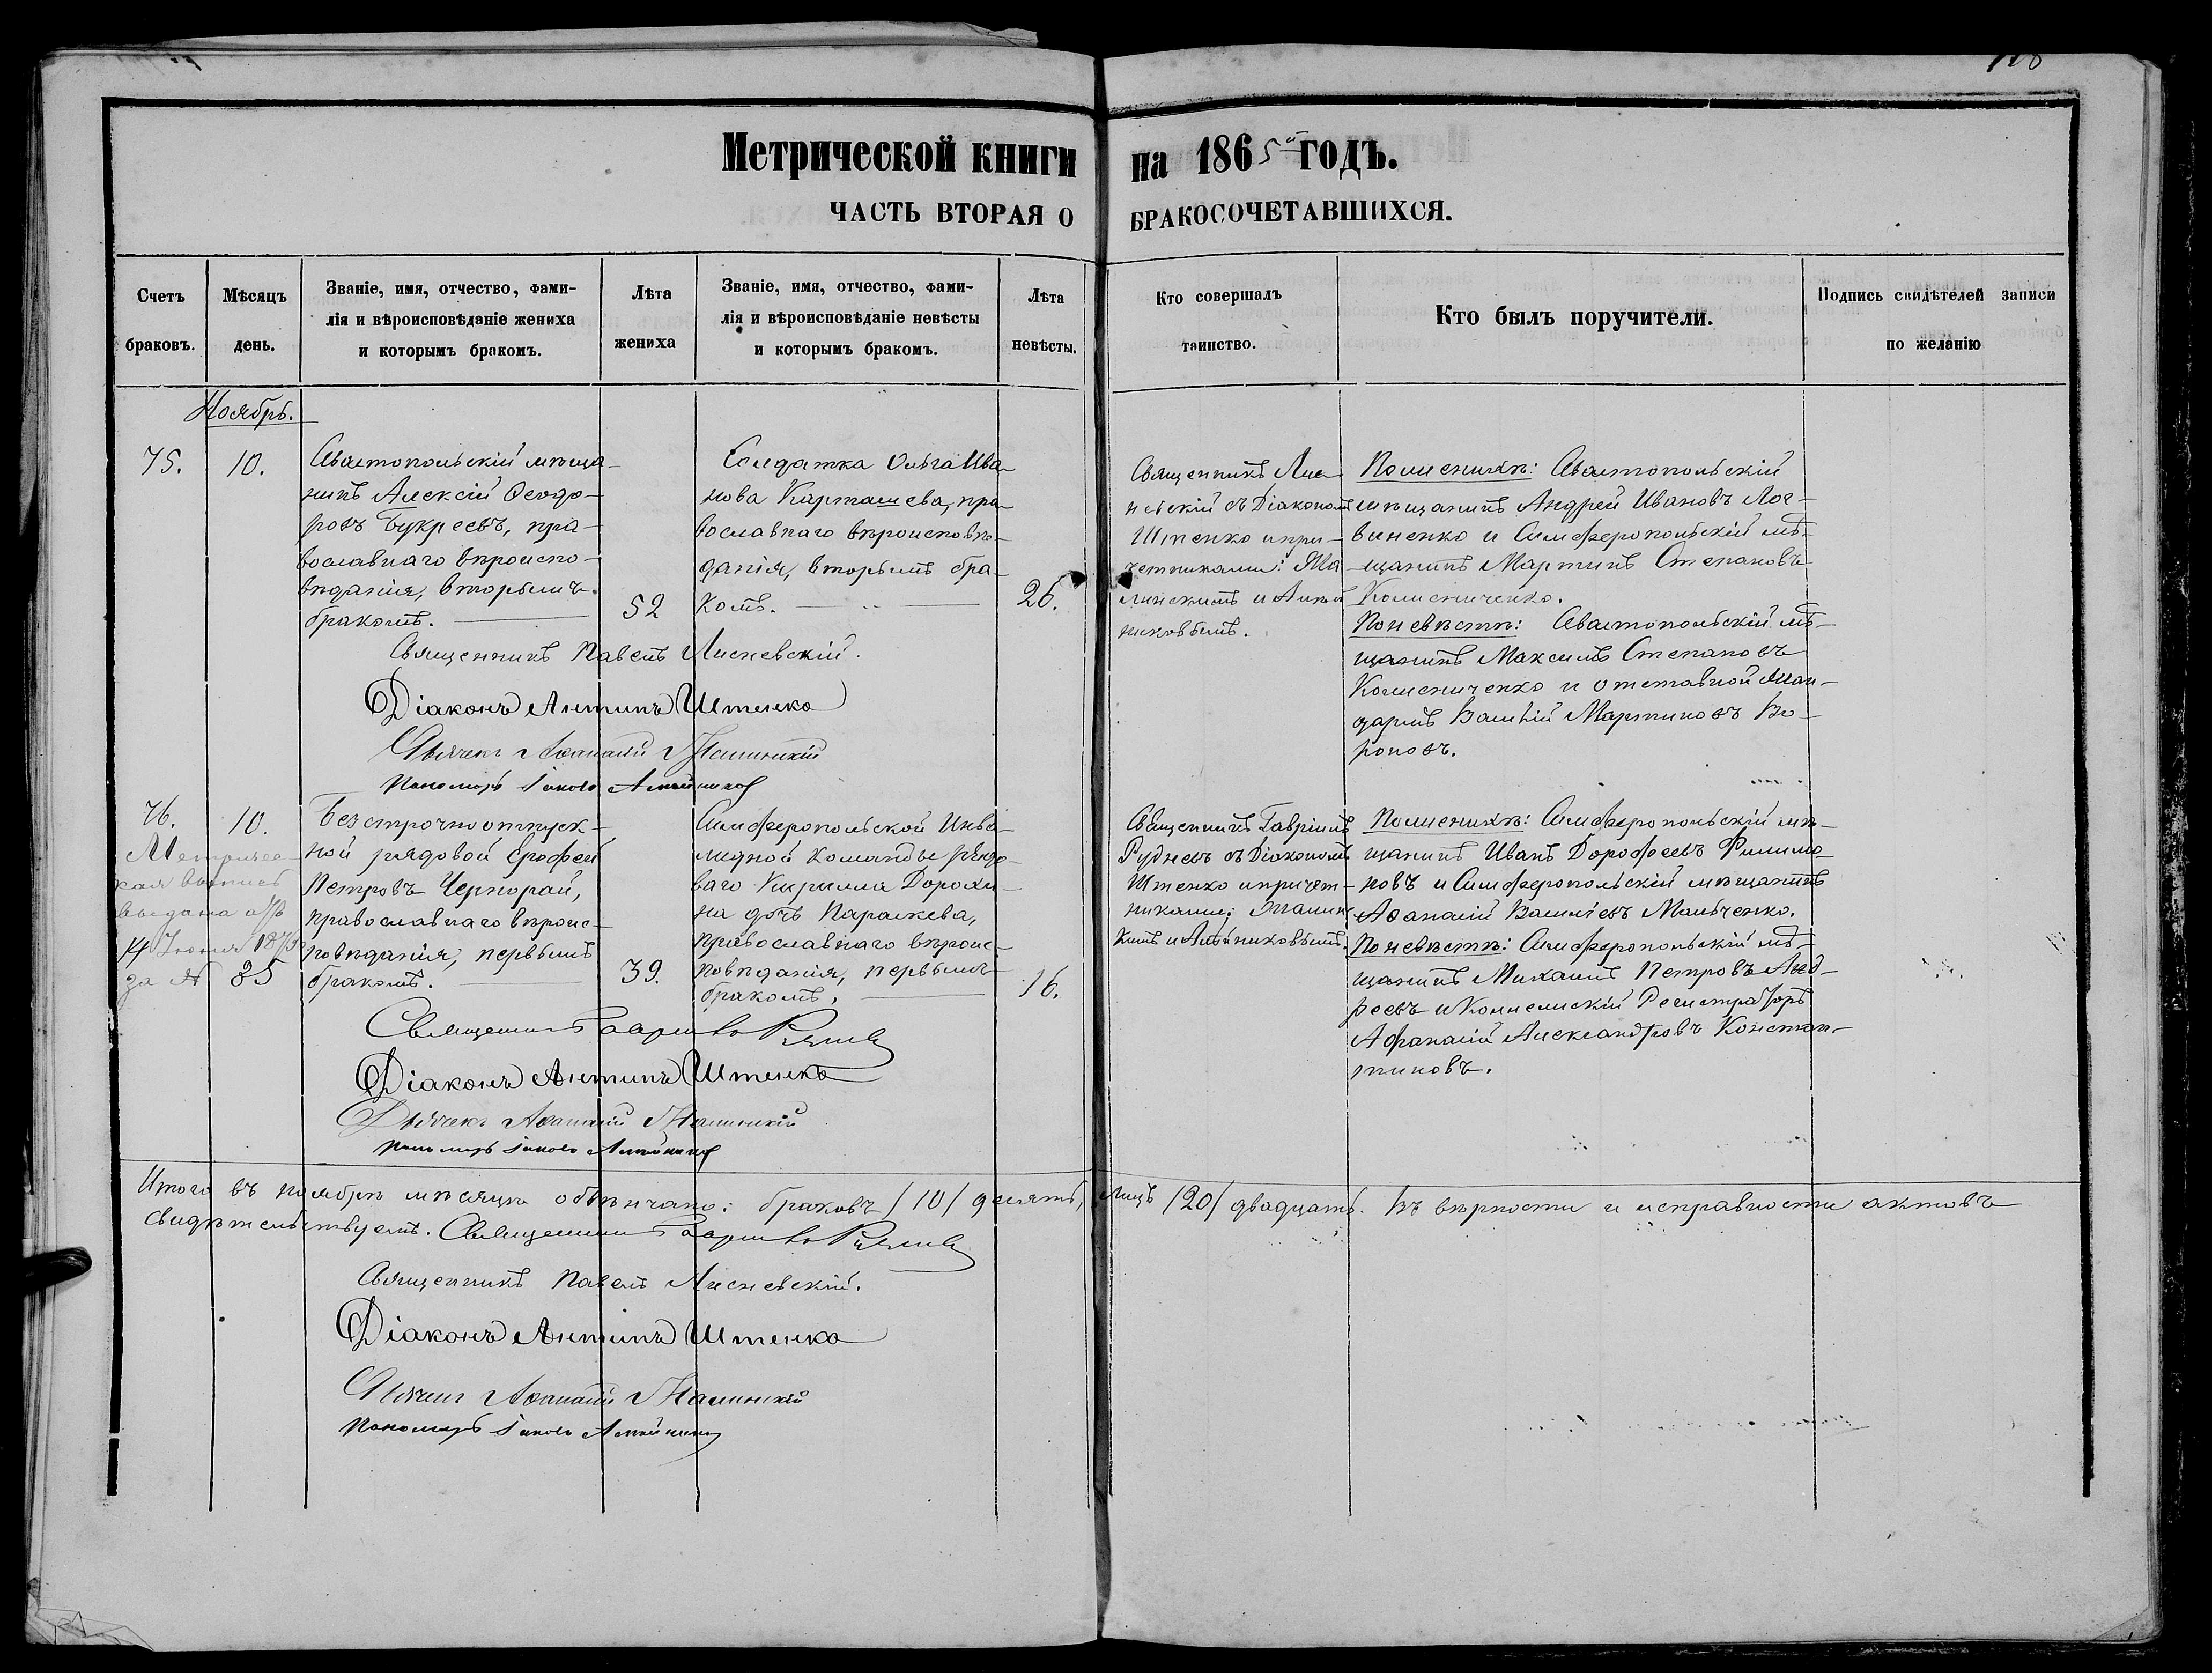 Метрической книги на 1865й годъ.
ЧАСТЬ ВТОРАЯ О БРАКОСОЧЕТАВШИХСЯ.
Счетъ
браковъ.
Мѣсяцъ
день.
Званіе, имя, отчество, фами-
лія и вѣроисповѣданіе жениха
и которымъ бракомъ.
Лѣта
жениха
Званіе, имя, отчество, фами-
лія и вѣроисповѣданіе невѣсты
и которымъ бракомъ.
Лѣта
невѣсты.
Кто совершалъ
таинство.
Кто былъ поручители.
Подпись свидѣтелей записи
по желанію
Ноябрь.
75.
10.
Севастопольскій мѣща-
нинъ Алексій Ѳеодо-
ровъ Букреевъ, пра-
вославнаго вѣроиспо-
вѣданія, вторымъ
бракомъ.
52
Солдатка Ольга Ива-
нова Карташева, пра-
вославнаго вѣроисповѣ-
данія, вторымъ бра-
комъ.
26.
Священникъ Лис-
невскій съ Діакономъ
Штенко и при-
четниками:
и
Поженихѣ: Севастопольскій
мѣщанинъ Андрей Ивановъ Лог-
виненко и Симферопольскій мѣ-
щанинъ Мартинъ Степановъ
Колисниченко.
Поневѣстѣ: Севастопольскій мѣ-
щанинъ Максимъ Степановъ
Колисниченко и отставной Жан-
дармъ Василій Мартиновъ Во-
роновъ.
Священникъ Павелъ Лисневскій.
Діаконъ Антипъ Штенко
Дьячекъ Аѳанасій
Пономарь Іаковъ
76.
10.
Метричес-
кая выпись
выдана
14 Іюня 1873
за № 85
Безсрочноотпуск-
ной рядовой Ерофей
Петровъ Чернорай,
православнаго вѣроис-
повѣданія, первымъ
бракомъ.
39.
Симферопольской Инва-
лидной Команды рядо-
ваго Кирилла Дорохи-
на дочь Параскева,
православнаго вѣроис-
повѣданія, первымъ
бракомъ.
16.
Священникъ Гавріилъ
Рудневъ съ Діакономъ
Штенко и причет-
никами:
Поженихѣ: Симферопольскій мѣ-
щанинъ Иванъ Дорофеевъ Филимо-
новъ и Симферопольскій мѣщанинъ
Аѳанасій Васильевъ Мальченко.
Поневѣстѣ: Симферопольскій мѣ-
щанинъ Михаилъ Петровъ Анд-
реевъ и Коллежскій Регистраторъ
Афанасій Александровъ Констан-
тиновъ.
Священникъ Гавріилъ Рудневъ
Діаконъ Антипъ Штенко
Дьячекъ Аѳанасій
Пономарь Іаковъ
Итого въ ноябрѣ мѣсяцѣ обвѣнчано: браковъ /10/ десять, лицъ /20/ двадцать. Въ вѣрности и исправности актовъ
свидѣтельствуемъ. Священникъ Гавріилъ Рудневъ
Священникъ Павелъ Лисневскій.
Діаконъ Антипъ Штенко
Дьячекъ Аѳанасій
Пономарь Іаковъ